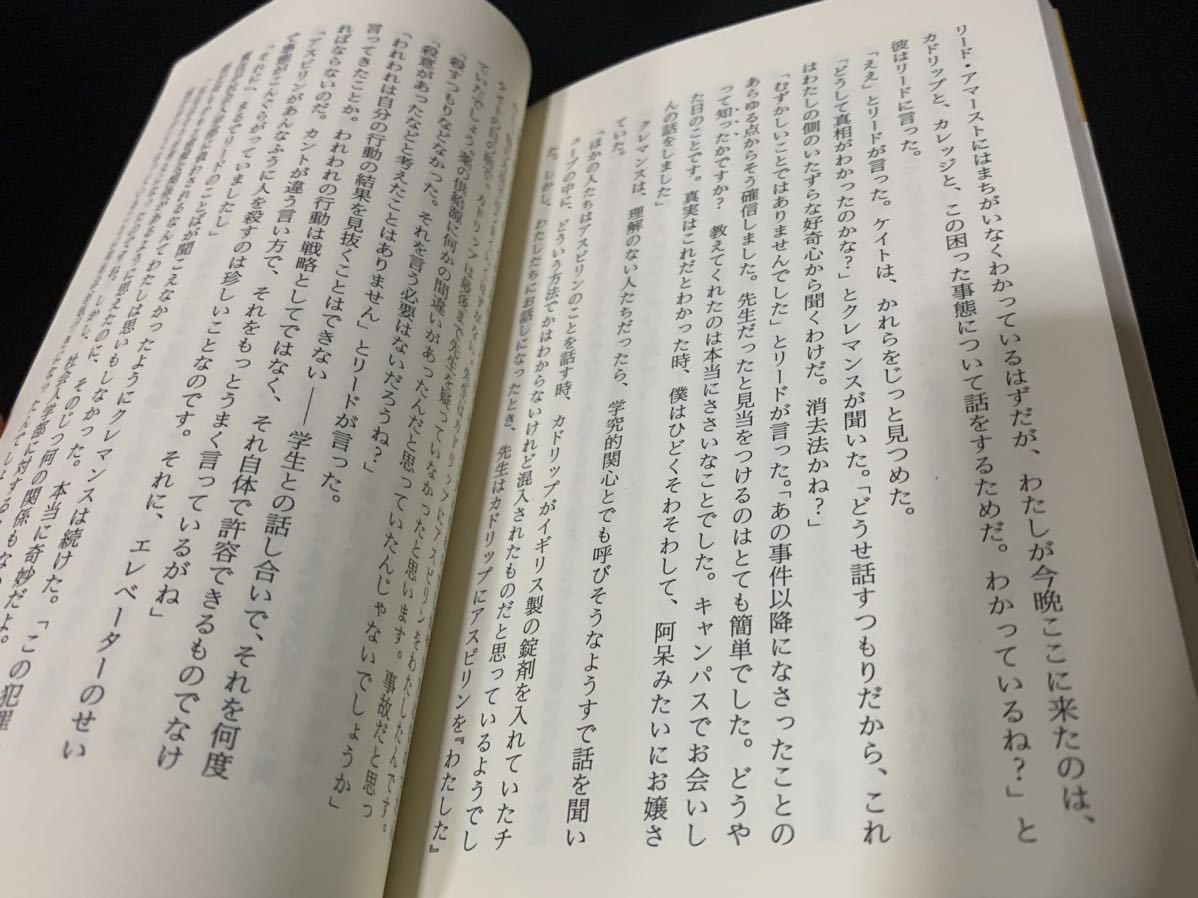 リード・アマーストにはまちがいなくわかっているはずだが、わたしが今晩ここに来たのは、
カドリップと、カレッジと、この困った事態について話をするためだ。わかっているね？」と
彼はリードに言った。
「ええ」とリードが言った。ケイトは、かれらをじっと見つめた。
「どうして真相がわかったのかな？」とクレマンスが聞いた。「どうせ話すつもりだから、これ
はわたしの側のいたずらな好奇心から聞くわけだ。消去法かね？」
「むずかしいことではありませんでした」とリードが言った。「あの事件以降になさったことの
あらゆる点からそう確信しました。先生だったと見当をつけるのはとても簡単でした。どうや
って知ったかですか？　教えてくれたのは本当にささいなことでした。キャンパスでお会いし
た日のことです。真実はこれだとわかった時、僕はひどくそわそわして、阿呆みたいにお嬢さ
んの話をしました」
クレマンスは、理解のない人たちだったら、学究的関心とでも呼びそうなようすで話を聞い
ていた。
「ほかの人たちはアスピリンのことを話す時、カドリップがイギリス製の錠剤を入れていたチ
ューブの中に、どういう方法でかはわからないけれど混入されたものだと思っているようでし
た。しかし、わたしたちにお話しになったとき、先生はカドリップにアスピリンを『わたした』
カドリップは最後まで先生を疑っていなかったと思います。事故だと思っ
ていたでしょう。薬の供給源に何かの間違いがあったんだと思っていたんじゃないでしょうか」
「殺すつもりなどなかった。それを言う必要はないだろうね？」
「殺意があったなどと考えたことはありません」とリードが言った。
「われわれは自分の行動の結果を見抜くことはできない――学生との話し合いで、それを何度
言ってきたことか。われわれの行動は戦略としてではなく、それ自体で許容できるものでなけ
ればならないのだ。カントが違う言い方で、それをもっとうまく言っているがね」
「アスピリンがあんなふうに人を殺すのは珍しいことなのです。それに、エレベーターのせい
で事態がこんぐらがっていましたし」
「それに」まるでリードのことばが聞こえなかったようにクレマンスは続けた。「この犯罪